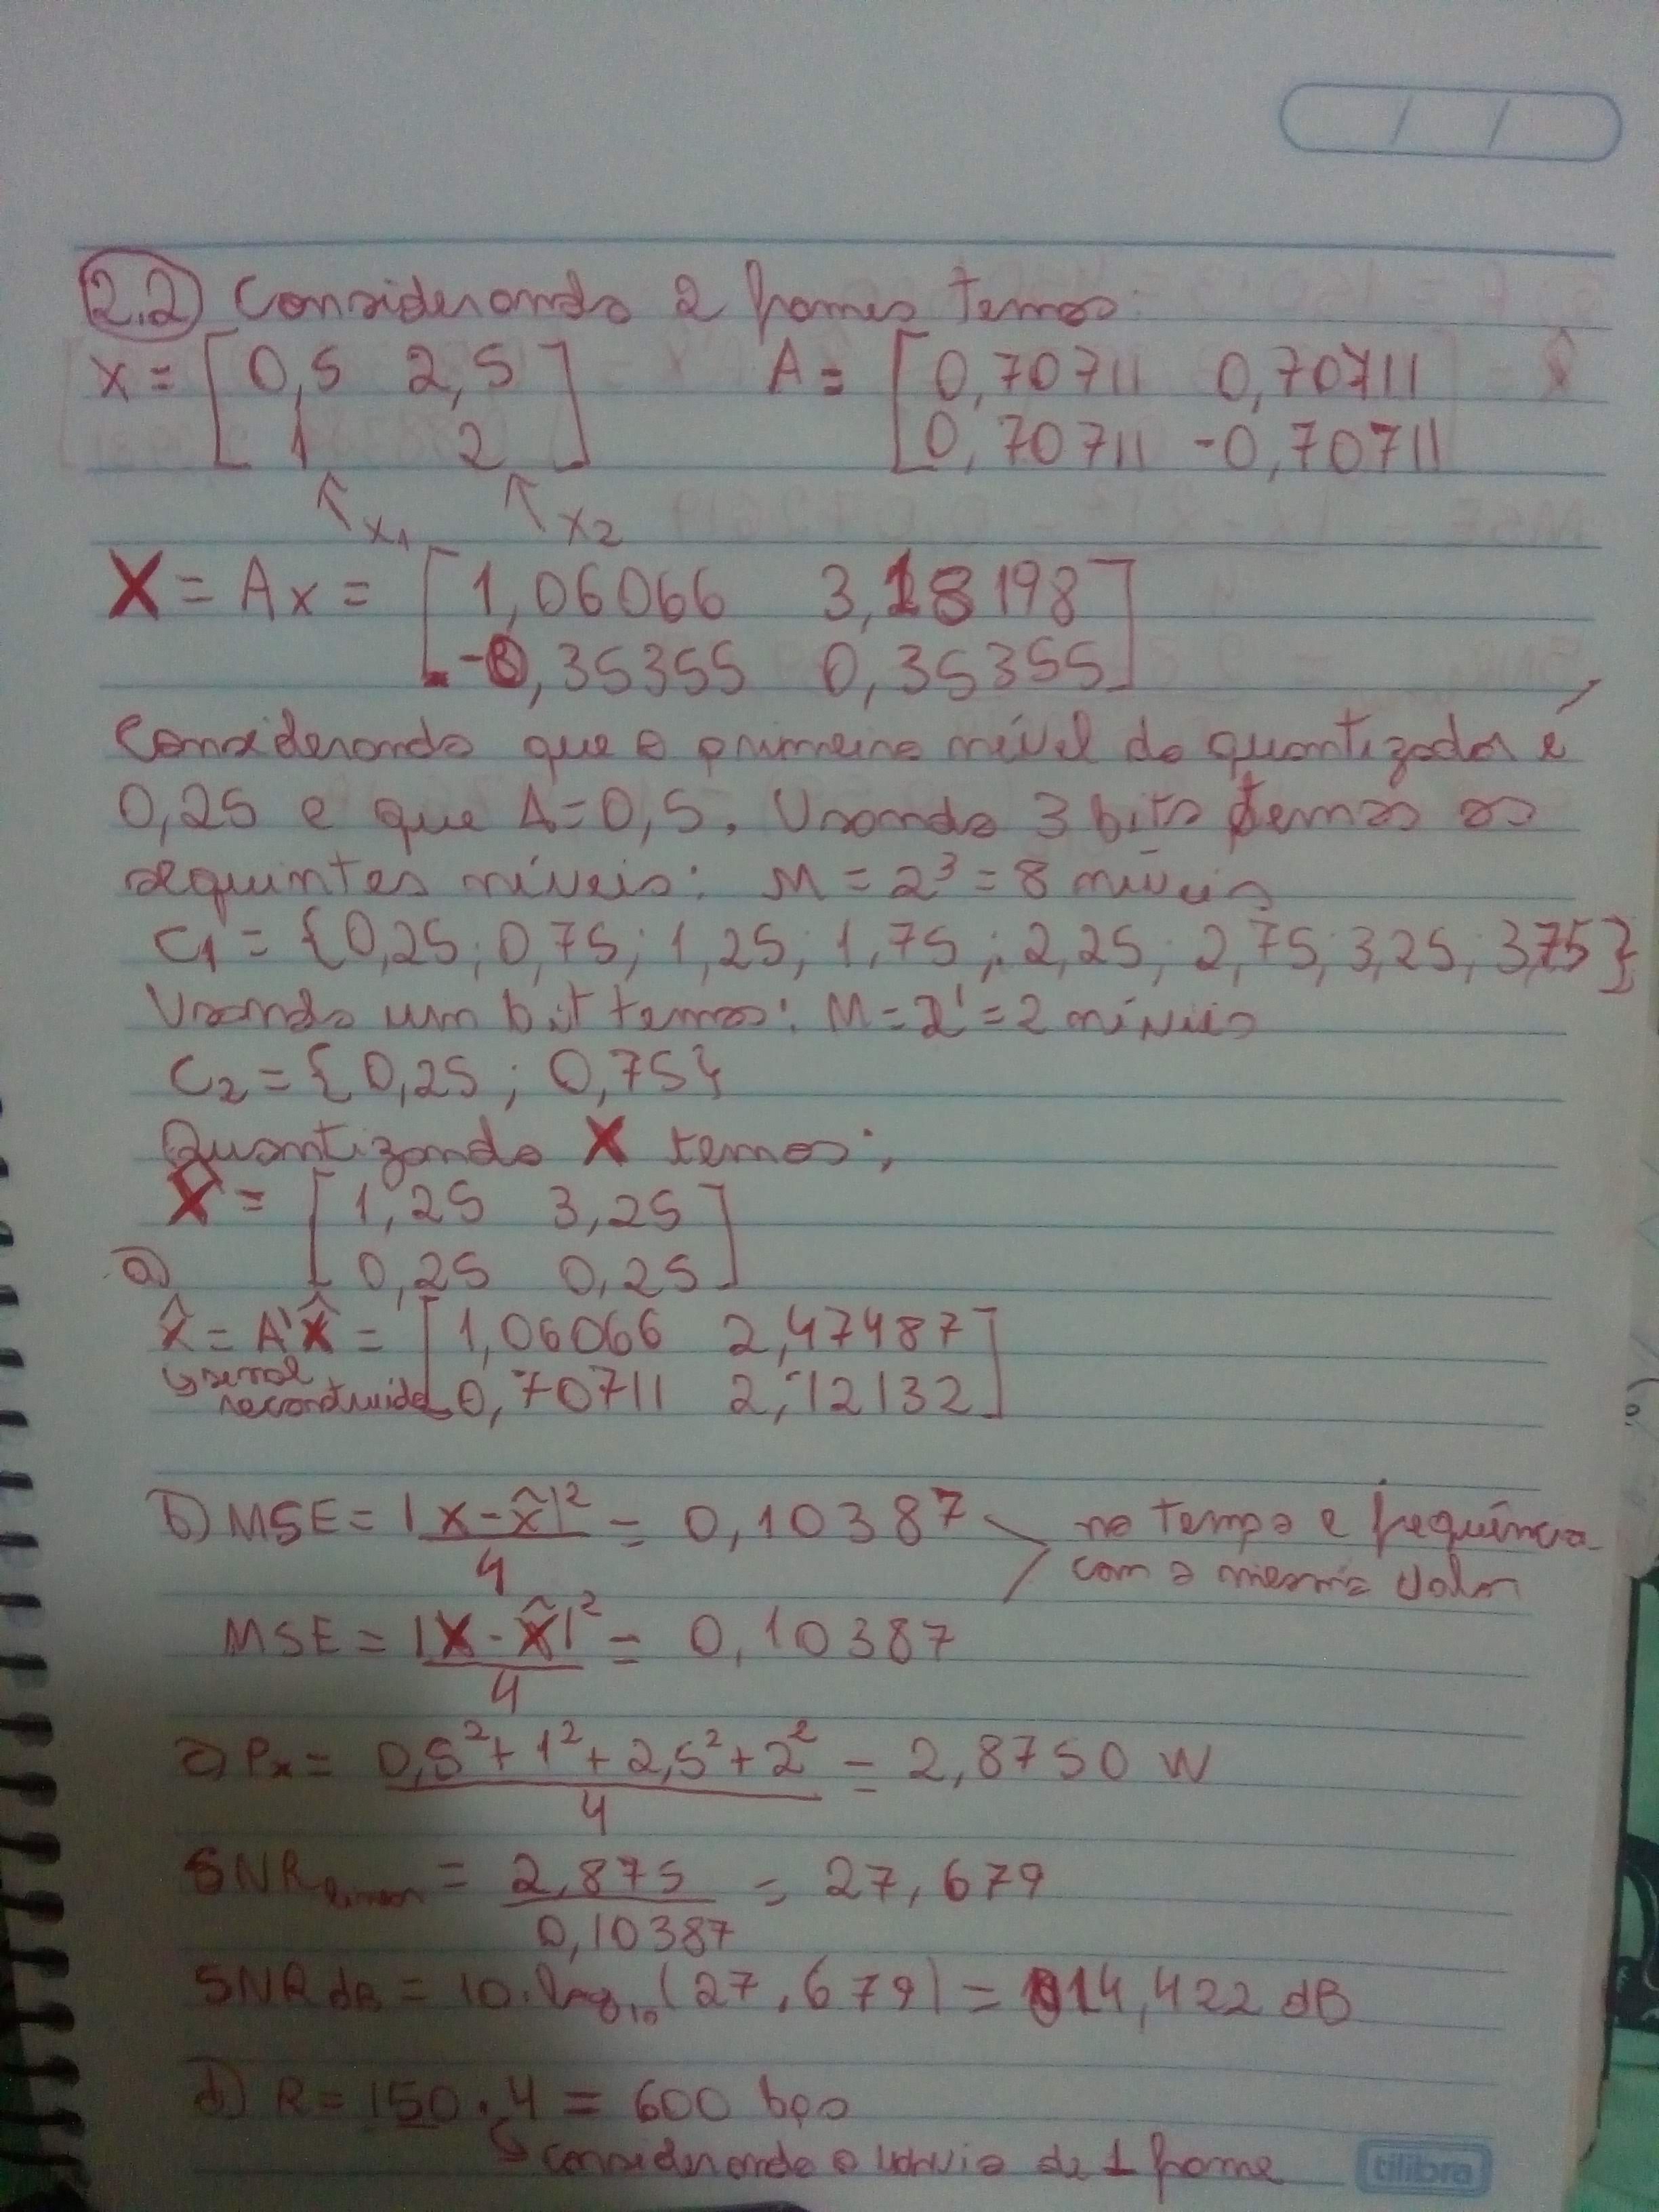 2.2) Considerando 2 frames temos:
x = [0,5 2,5 A = [0,70711 0,70711
1 2] 0,70711 -0,70711
x1 x2
X = Ax = [1,06066 3,18198
-0,35355 0,35355]
Considerando que o primeiro nível do quantizador é
0,25 e que Δ=0,5. Usando 3 bits temos os
seguintes níveis: M = 2³ = 8 níveis
C1 = {0,25; 0,75; 1,25; 1,75; 2,25; 2,75; 3,25; 3,75}
Usando um bit temos: M = 2¹ = 2 níveis
C2 = {0,25; 0,75}
Quantizando X temos:
X̂ = [1,25 3,25
a) 0,25 0,25]
x̂ = A'X̂ = [1,06066 2,47487
↳ sinal
reconstruido 0,70711 2,12132]
b) MSE = |x - x̂|² / 4 = 0,10387 no tempo e frequência
com o mesmo valor
MSE = |X - X̂|² / 4 = 0,10387
c) Px = 0,5² + 1² + 2,5² + 2² / 4 = 2,8750 W
SNR linear = 2,875 / 0,10387 = 27,679
SNR dB = 10.log10(27,679) = 14,422 dB
d) R = 150 . 4 = 600 bps
↳ considerando o envio de 1 frame
tilibra